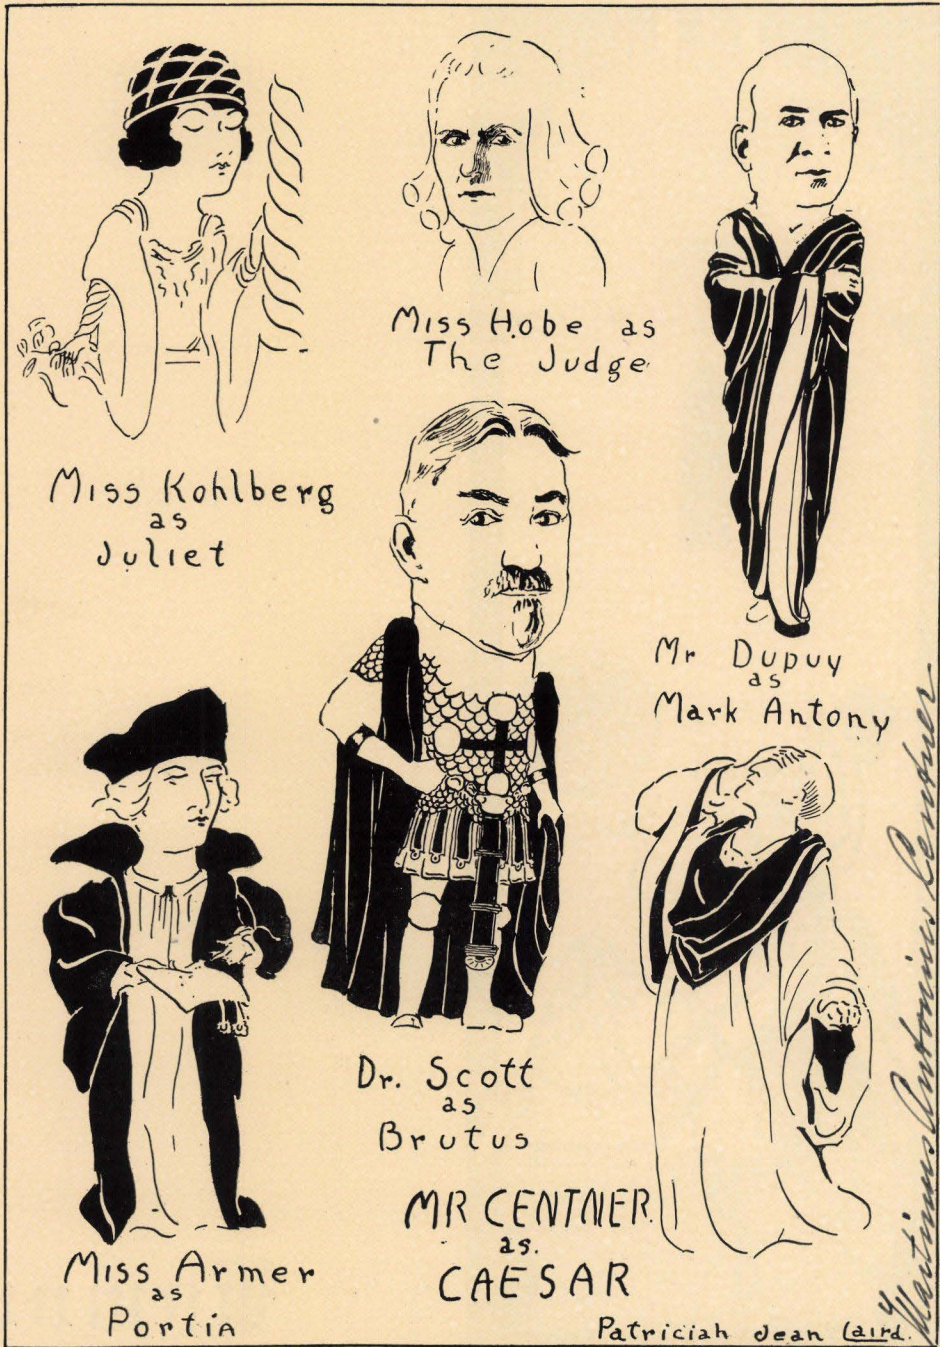 Miss Hobe as
The Judge
Miss Kohlberg
as
Juliet
Mr Dupuy
as
Mark Antony
Dr. Scott
as
Brutus
MR CENTNER
as.
CAESAR
Miss Armer
as
Portia
Patriciah Jean Laird.
Martinus Antonius Centner